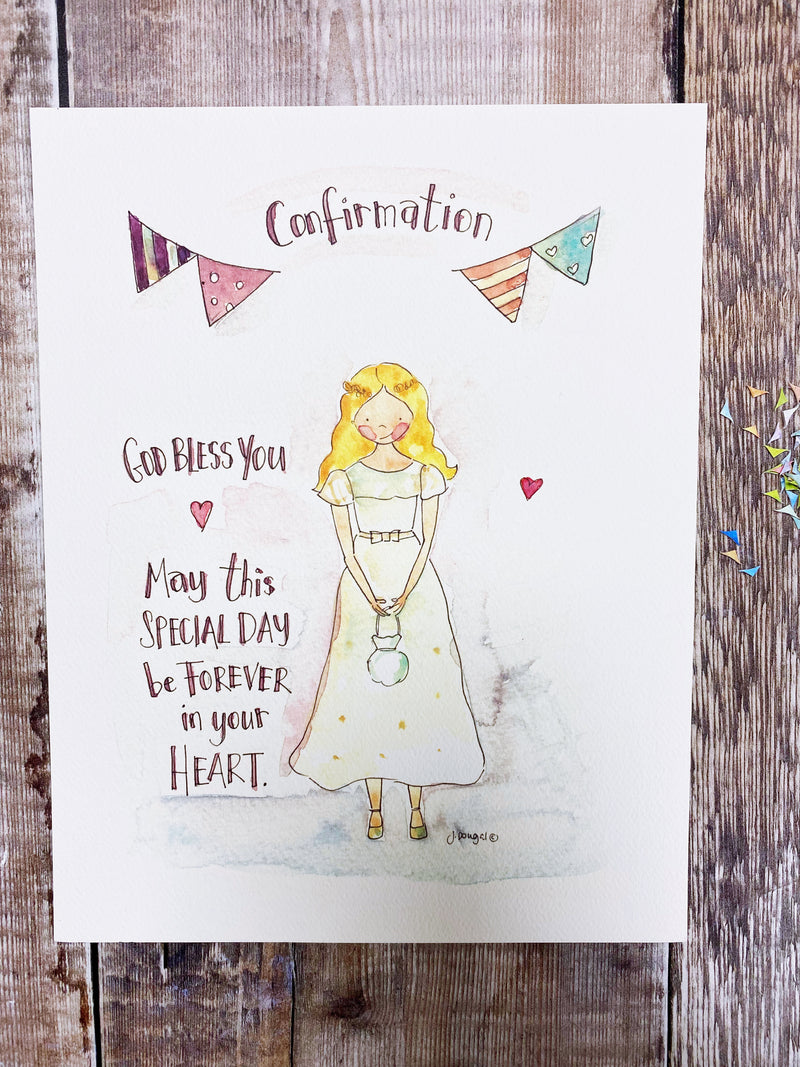 Confirmation
GOD BLESS YOU
May this
SPECIAL DAY
be FOREVER
in your
HEART.
J.Dougal©